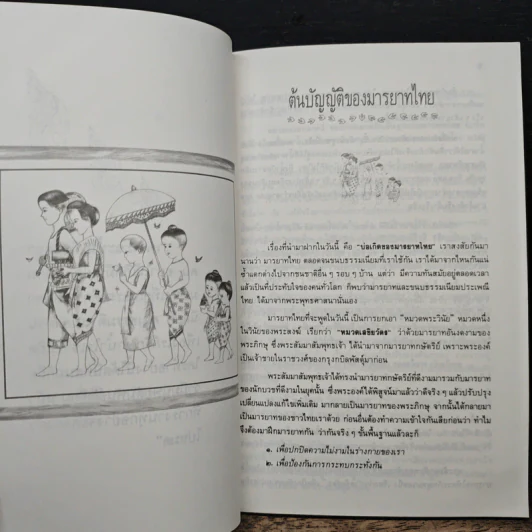 ต้นบัญญัติของมารยาทไทย
เรื่องที่นำมาฝากในวันนี้ คือ "บ่อเกิดของมารยาทไทย" เราสงสัยกันมา
นานว่า มารยาทไทย ตลอดจนขนบธรรมเนียมที่เราใช้กัน เราได้มาจากไหนกันแน่
ซ้ำแตกต่างไปจากชนชาติอื่น ๆ รอบ ๆ บ้าน แต่ว่า มีความทันสมัยอยู่ตลอดเวลา
แล้วเป็นที่ประทับใจของคนทั่วโลก ก็พบว่ามารยาทและขนบธรรมเนียมประเพณี
ไทย ได้มาจากพระพุทธศาสนานั่นเอง
มารยาทไทยที่จะพูดในวันนี้ เป็นการยกเอา "หมวดพระวินัย" หมวดหนึ่ง
ในวินัยของพระสงฆ์ เรียกว่า "หมวดเสขิยวัตร" ว่าด้วยมารยาทอันงดงามของ
พระภิกษุ ซึ่งพระสัมมาสัมพุทธเจ้า ได้นำมาจากมารยาทกษัตริย์ เพราะพระองค์
เป็นเจ้าชายในราชวงศ์ของกรุงกบิลพัสดุ์มาก่อน
พระสัมมาสัมพุทธเจ้าได้ทรงนำมารยาทกษัตริย์ที่ดีงามมารวมกับมารยาท
ของนักบวชที่ดีงามในยุคนั้น ซึ่งพระองค์ได้พิสูจน์มาแล้วว่าดีจริง ๆ แล้วปรับปรุง
เปลี่ยนแปลงแก้ไขเพิ่มเติม มากลายเป็นมารยาทของพระภิกษุ จากนั้นได้กลายมา
เป็นมารยาทของชาวไทยเราด้วย ก่อนอื่นต้องทำความเข้าใจกันเสียก่อนว่า ทำไม
จึงต้องมาฝึกมารยาทกัน ว่ากันจริง ๆ ขั้นพื้นฐานแล้วละก็
๑. เพื่อปกปิดความไม่งามในร่างกายของเรา
๒. เพื่อป้องกันการกระทบกระทั่งกัน